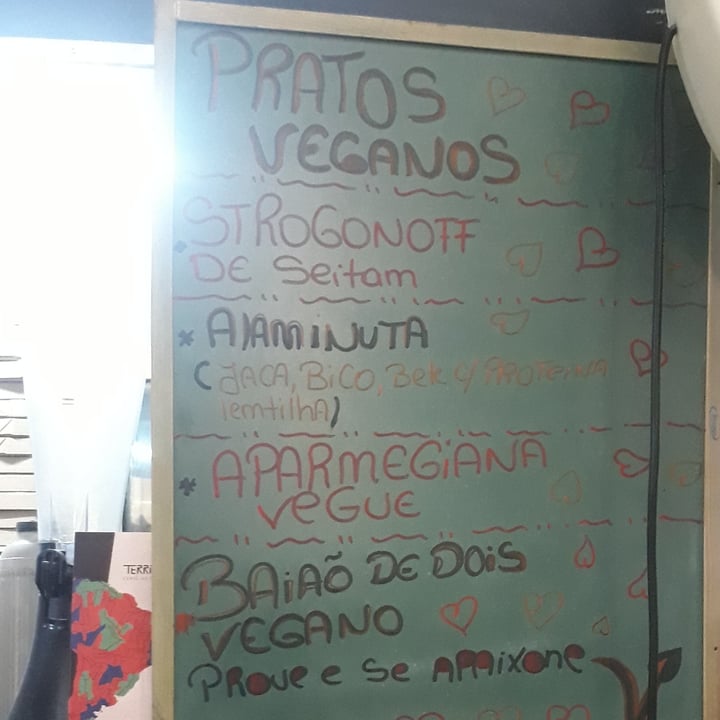 PRATOS
VEGANOS
STROGONOFF
DE Seitam
* AlAMiNUTA
(JACA, BiCO, Bek c/ PROTEINA
lemtilhA)
* APARMEGiANA
VEGUE
BAiAÕ DE DOiS
VEGANO
PROVE e Se APAixone
TERRI